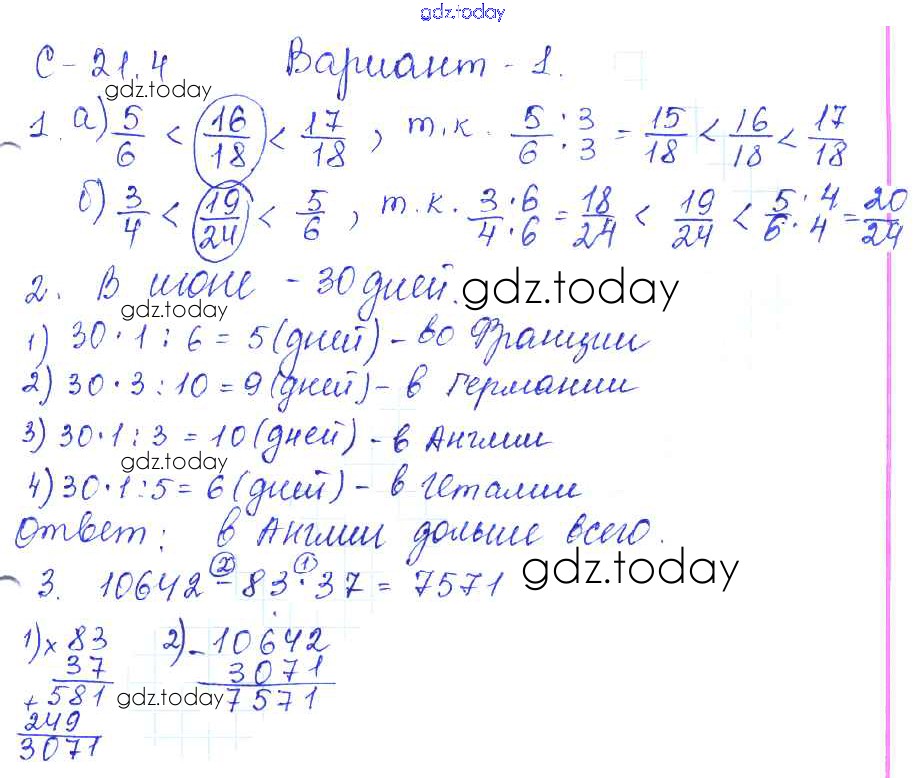 gdz.today
С-21.4 Вариант - 1.
gdz.today
1. а) 5/6 < 16/18 < 17/18, т.к. 5/6 · 3/3 = 15/18 < 16/18 < 17/18
б) 3/4 < 19/24 < 5/6, т.к. 3/4 · 6/6 = 18/24 < 19/24 < 5/6 · 4/4 = 20/24
2. В июне - 30 дней.
gdz.today
gdz.today
1) 30·1:6=5(дней)-во Франции
2) 30·3:10=9(дней)-в Германии
3) 30·1:3=10(дней)-в Англии
gdz.today
4) 30·1:5=6(дней)-в Италии
Ответ: в Англии дольше всего.
gdz.today
3. 10642 - 83·37 = 7571
2 1
1) × 83
37
+ 581
249
3071
gdz.today
2) - 10642
3071
7571